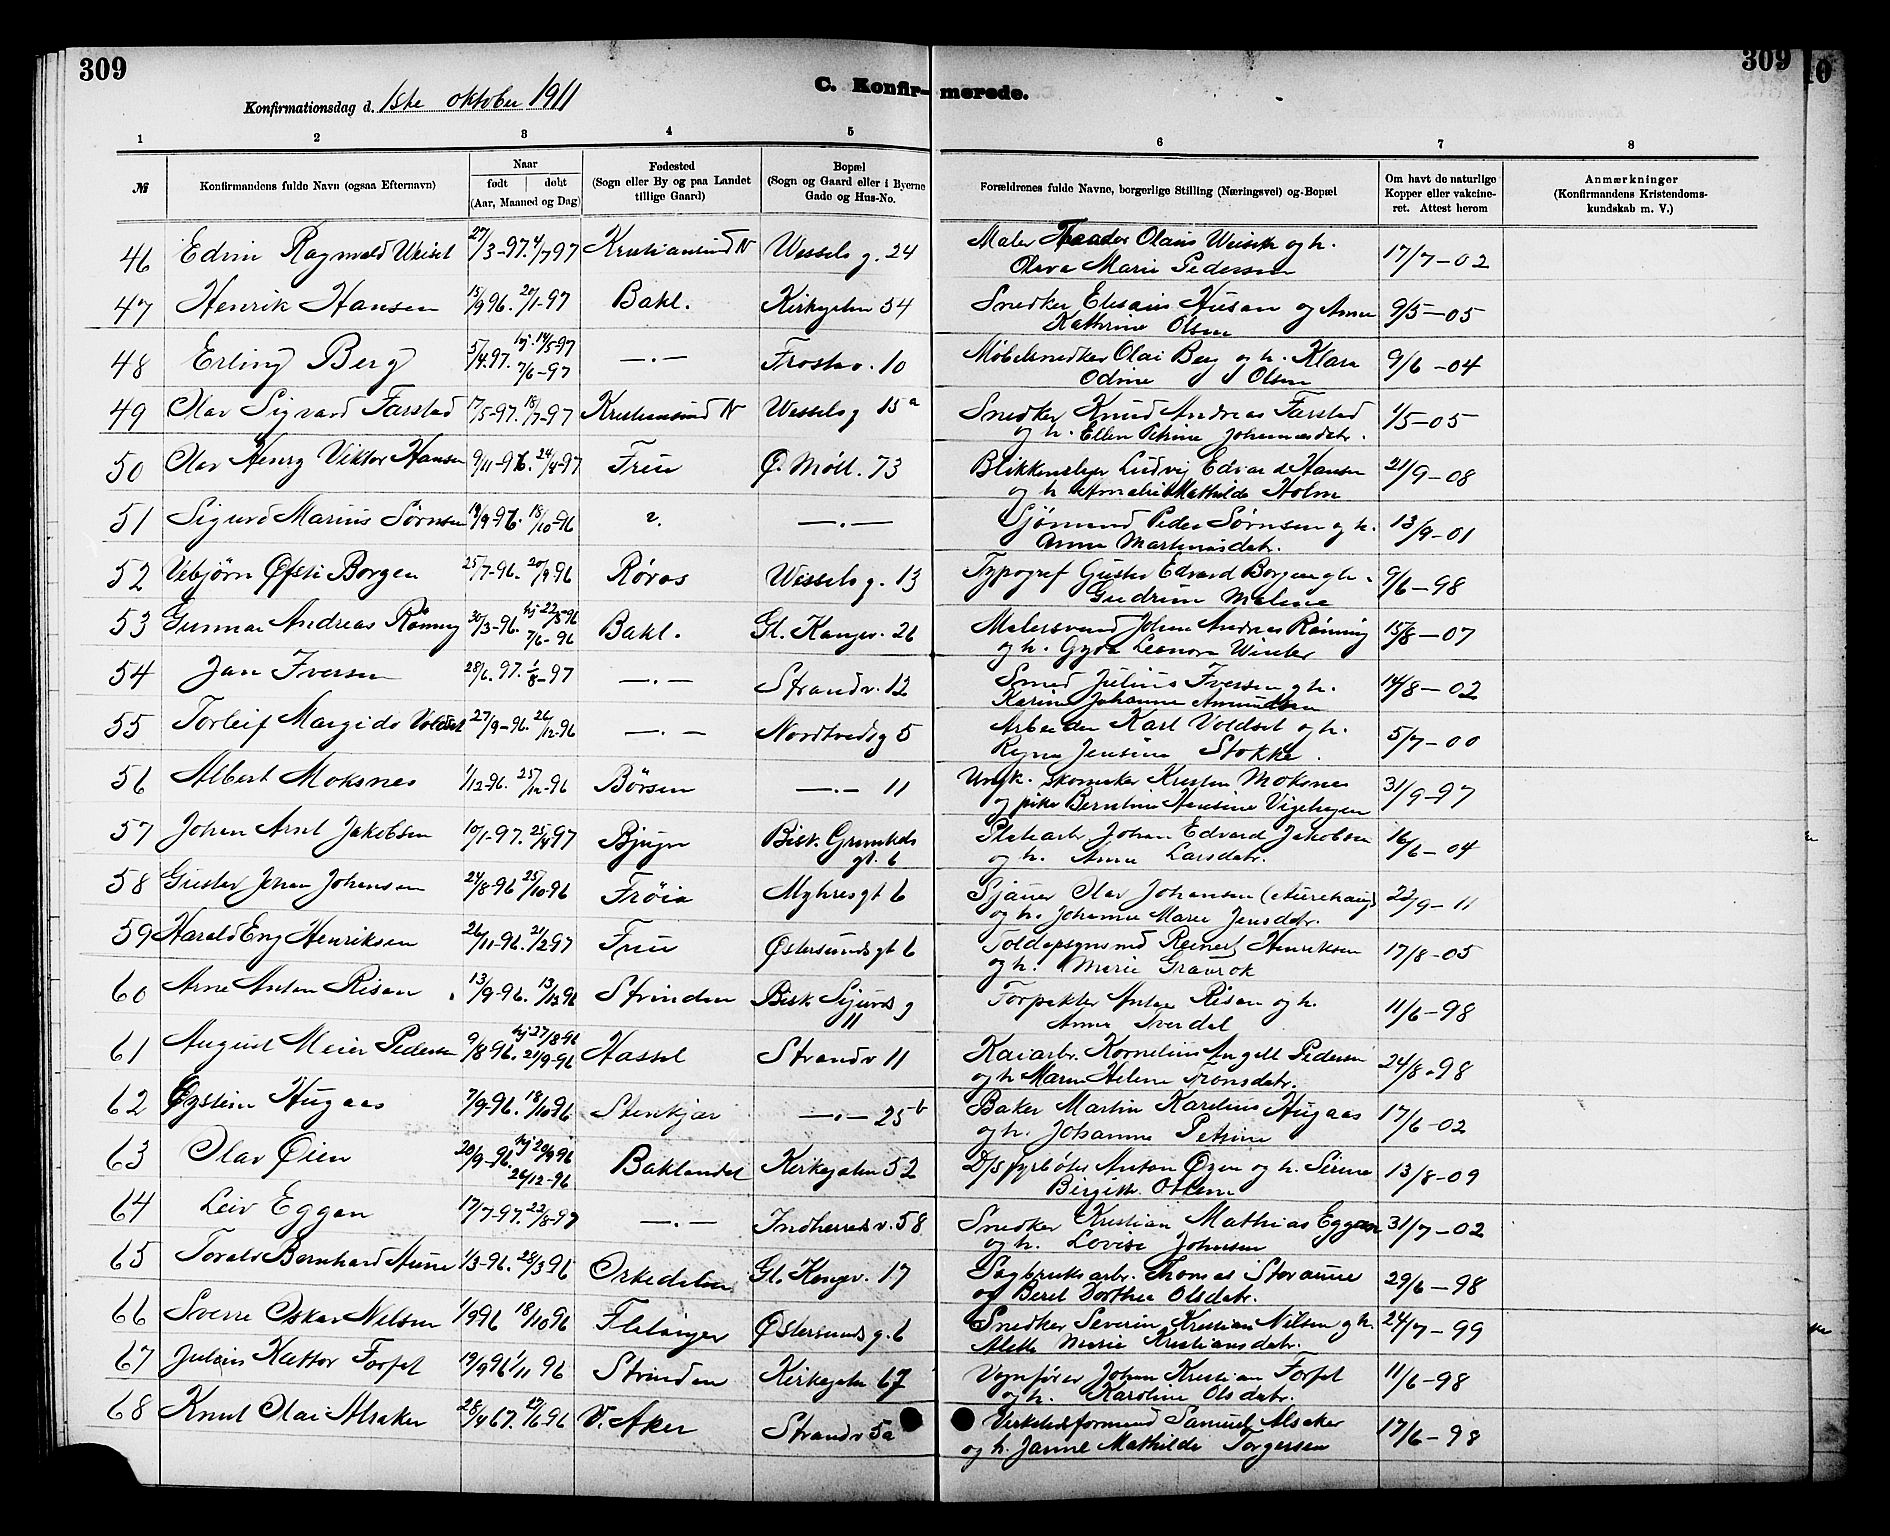 309
309
C. Konfirmerede.
Konfirmationsdag d. 1ste oktober 1911
1 2 3 4 5 6 7 8
№ Konfirmandens fulde Navn (ogsaa Efternavn) Naar født | døbt (Aar, Maaned og Dag) Fødested (Sogn eller By og paa Landet tillige Gaard) Bopæl (Sogn og Gaard eller i Byerne Gade og Hus-No. Forældrenes fulde Navne, borgerlige Stilling (Næringsvei) og Bopæl Om havt de naturlige Kopper eller vakcineret. Attest herom Anmærkninger (Konfirmandens Kristendomskundskab m. V.)
46 Edvin Ragnvald 27/3-97. 4/7 97 Kristiansund N Wessels g. 24 Maler Olaus og h. 17/7-02
Olava Marie Pedersen
47 Henrik Hansen 15/9 96. 20/1-97 Bakl. Kirkegaten 54 Snedker og Anna 9/5-05
Kathrine Olsen
48 Erling Berg 5/4 97. hj. 14/5-97 7/6-97 —.— Frostav. 10 Møbelsnedker Olai Berg og h. Klara 9/6-04
Odine Olsen
49 Olav Sigvard Farstad 17/5-97. 18/7-97 Kristiansund N Wessels g 15a Snedker Knud Andreas Farstad 1/5-05
og h. Ellen Petrine Johannesdatr.
50 Olav Henry Viktor Hansen 9/11-96. 24/4-97 Frue Ø. Møll. 73 Blikkenslager Ludvig Edvard Hansen 21/9-08
og h. Amalie Mathilde Holm
51 Sigurd Marius Sørnsen 19/9-96. 18/10-96 —.— Sjømand Peder Sørnsen og h. 13/9-01
Anna Martinusdatr.
52 Vebjörn Øfsti Borgen 25/7-96. 20/9-96 Røros Wessels g. 13 Typograf Gustav Edvard Borgen og h. 9/6-98
Gudrun Malene
53 Gunnar Andreas Rönning 30/3-96. hj 22/5-96 7/6-96 Bakl. Gl. Kongev. 26 Malersvend Johan Andreas Rönning 15/8-07
og h. Gyda Leonora Winter
54 Jan Iversen 28/6. 97. 1/8-97 —.— Strandv. 12 Smed Julius Iversen og h. 14/8-02
Karine Johanne Amundsen
55 Torleif Margido Voldset 27/9-96. 26/12-96 —.— Nordtvedtg 5 Arbeider Karl Voldset og h. 5/7-00
Jensine Stokke.
56 Albert Moksnes 1/12-96. 25/12-96 Börsen —.— 11 Ungk. skomaker Kristen Moksnes 31/9-97
og pike Berntine Hansine
57 Johan Arnt Jakobsen 10/1-97. 25/4 97 Bjugn Bisk. Grimkels gt. 6 Johan Edvard Jakobsen 16/6-04
og h. Anna Larsdatr.
58 Gustav Johan Johansen 24/8-96 25/10-96 Fröia Myhresgt 6 Sjauer Olav Johansen (Aurehaug) 22/9-11
og h. Johanna Marie Jensdatr.
59 Harald Eng Henriksen 26/11-96. 21/2 97 Frue Østersundsgt 6 Toldopsynsmd Reinert Henriksen 17/8-05
og h. Marie Gravrok
60 Arne Anton Risan 13/9-96. 13/12 96 Strinden Bisk Sigurds g 11 Forpakter Anton Risan og h. 11/6-98
Anna Tverdal
61 August Meier Pedersen 9/8-96. hj 27/8-96 24/9-96 Hassel Strandv 11 Kaiarb. Kornelius Angell Pedersen 24/8-98
og h Maren Helene Tronsdatr.
62 Øystein Hugaas 7/9-96. 18/10 96 Stenkjær —.— 25b Baker Martin Karelius Hugaas 17/6-02
og h. Johanna Petrine
63 Olav Øien 20/9-96. hj 20/9 96 26/12-96 Baklandet Kirkegaten 52 D/s fyrbøter Anton Øyen og h. 13/8-09
64 Leiv Eggan 17/7-97. 22/8-97 —.— Indherredsv. 58 Snedker Kristian Mathias Eggan 31/7-02
og h. Lovise Johnsen
65 Torald Bernhard Aune 1/3-96. 28/3 96 Orkedalen Gl. Kongev. 17 Sagbruksarb. Thomas Storaune 29/6-98
og Beret Dorthea Olsdatr.
66 Sverre Oskar Nilsen 1/9 96 18/10 96 Flatanger Østersundsg. 6 Snedker Severin Kristian Nilsen og h. 24/7-99
Aletta Marie Kristiansdatr.
67 Julius Forset 19/9 96 1/11 96 Strinden Kirkegaten 67 Vognfører Johan Kristian Forset 11/6-98
og h. Karoline Olsdatr.
68 Knut Olai Alsaker 28/4 67. V. Aker Strandv 5a Verkstedsformand Samuel Alsaker 17/6-98
og h. Janne Mathilde Torgersen